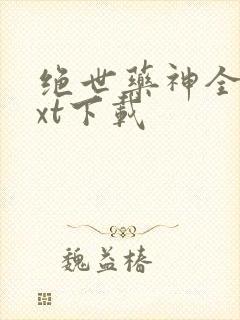 绝世药神全
xt下载
魏益椿